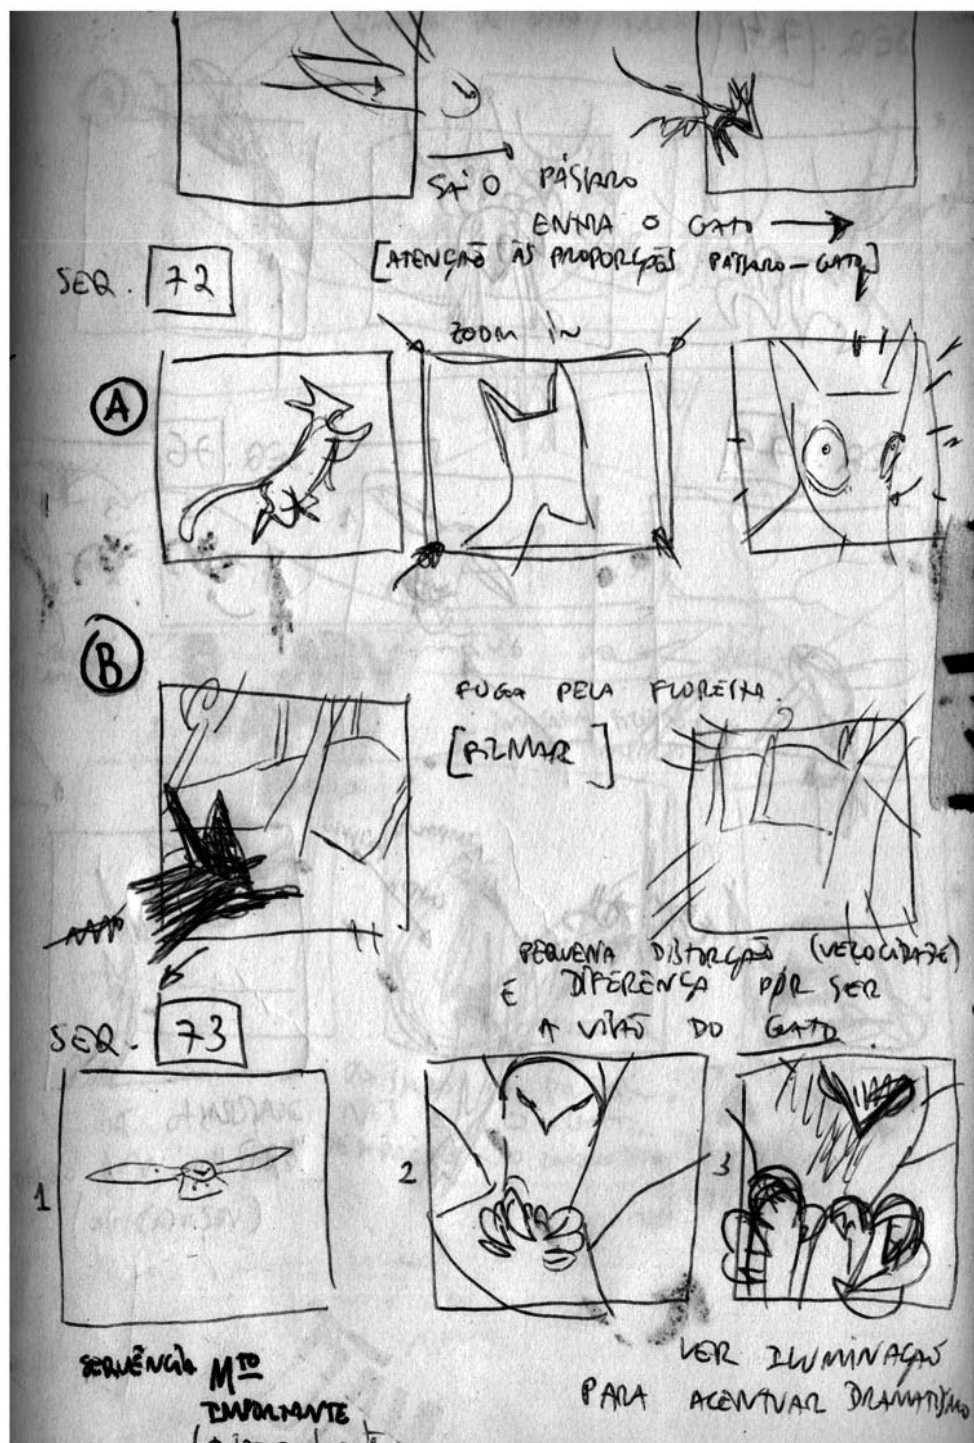 SAI O PÁSSARO
ENTRA O GATO
[ATENÇÃO ÀS PROPORÇÕES PÁSSARO-GATO]
SEQ. 72
ZOOM IN
A
B
FUGA PELA FLORESTA.
[FILMAR]
PEQUENA DISTORÇÃO (VELOCIDADE)
E DIFERENÇA POR SER
A VISÃO DO GATO.
SEQ. 73
1
2
3
SEQUÊNCIA MTO
IMPORTANTE
VER ILUMINAÇÃO
PARA ACENTUAR DRAMATISMO